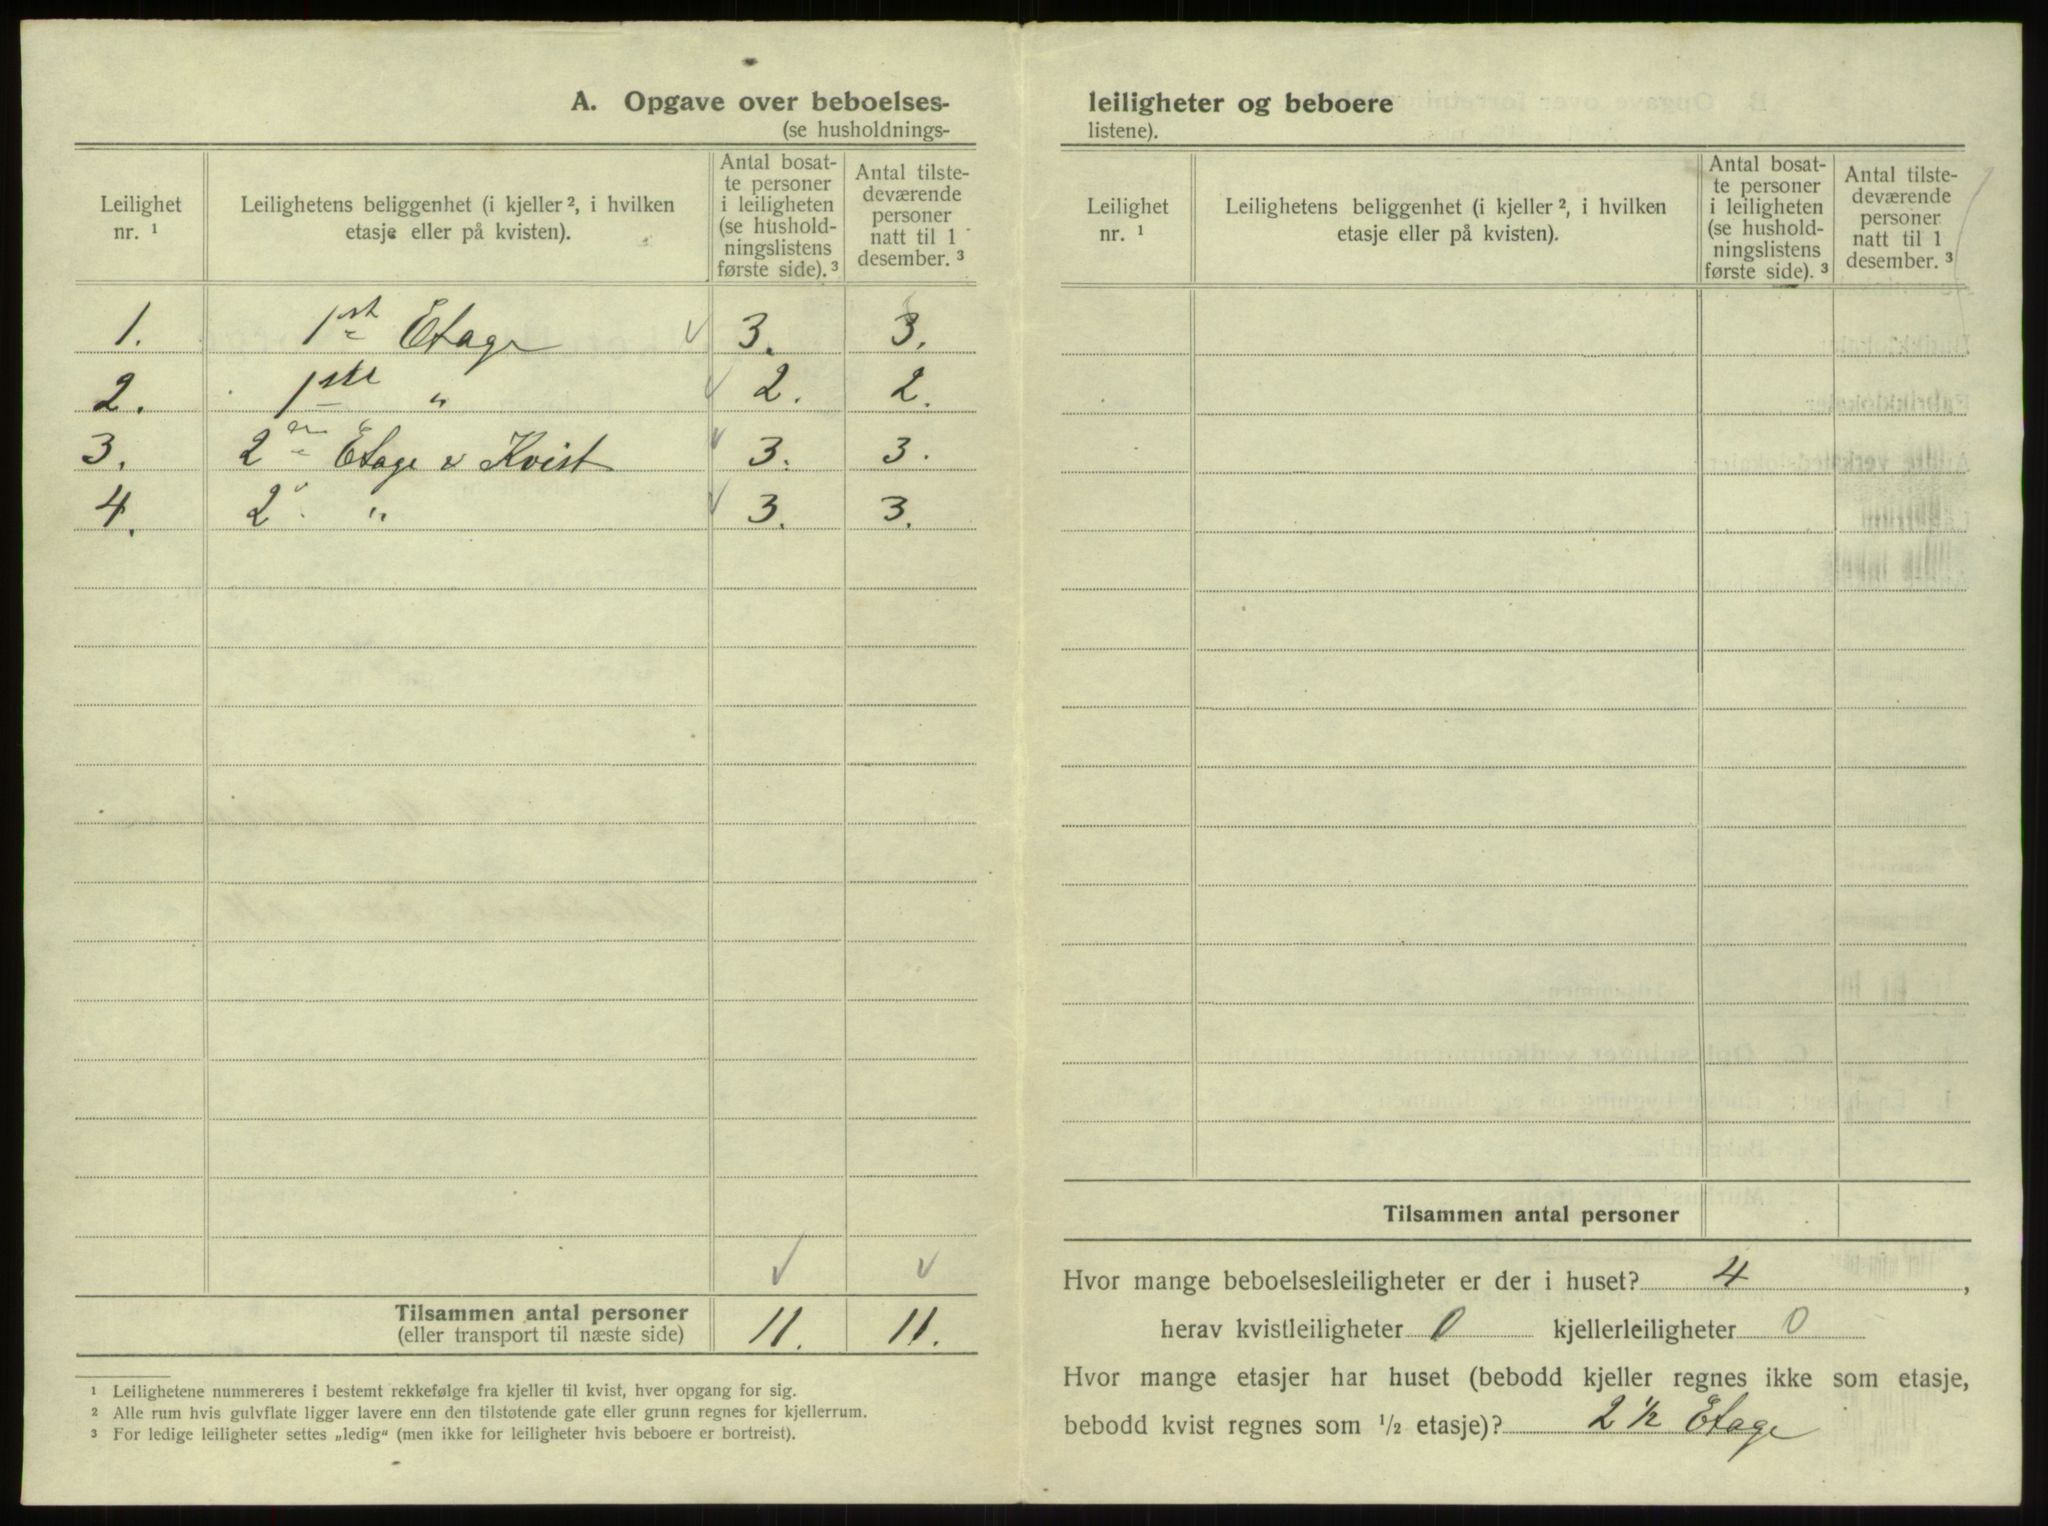 A. Opgave over beboelses-
(se husholdnings-
Leilighet
nr. ¹
Leilighetens beliggenhet (i kjeller ², i hvilken
etasje eller på kvisten).
Antal bosat-
te personer
i leiligheten
(se hushold-
ningslistens
første side). ³
Antal tilste-
deværende
personer
natt til 1
desember. ³
1. 1st Etage 3. 3.
2. 1ste " 2. 2.
3. 2en Etage & Kvist 3. 3.
4. 2 " 3. 3.
Tilsammen antal personer
(eller transport til næste side) 11. 11.
¹ Leilighetene nummereres i bestemt rekkefølge fra kjeller til kvist, hver opgang for sig.
² Alle rum hvis gulvflate ligger lavere enn den tilstøtende gate eller grunn regnes for kjellerrum.
³ For ledige leiligheter settes „ledig“ (men ikke for leiligheter hvis beboere er bortreist).
leiligheter og beboere
listene).
Leilighet
nr. ¹
Leilighetens beliggenhet (i kjeller ², i hvilken
etasje eller på kvisten).
Antal bosat-
te personer
i leiligheten
(se hushold-
ningslistens
første side). ³
Antal tilste-
deværende
personer
natt til 1
desember. ³
Tilsammen antal personer
Hvor mange beboelsesleiligheter er der i huset? 4 ,
herav kvistleiligheter 0 kjellerleiligheter 0
Hvor mange etasjer har huset (bebodd kjeller regnes ikke som etasje,
bebodd kvist regnes som ½ etasje)? 2 ½ Etage